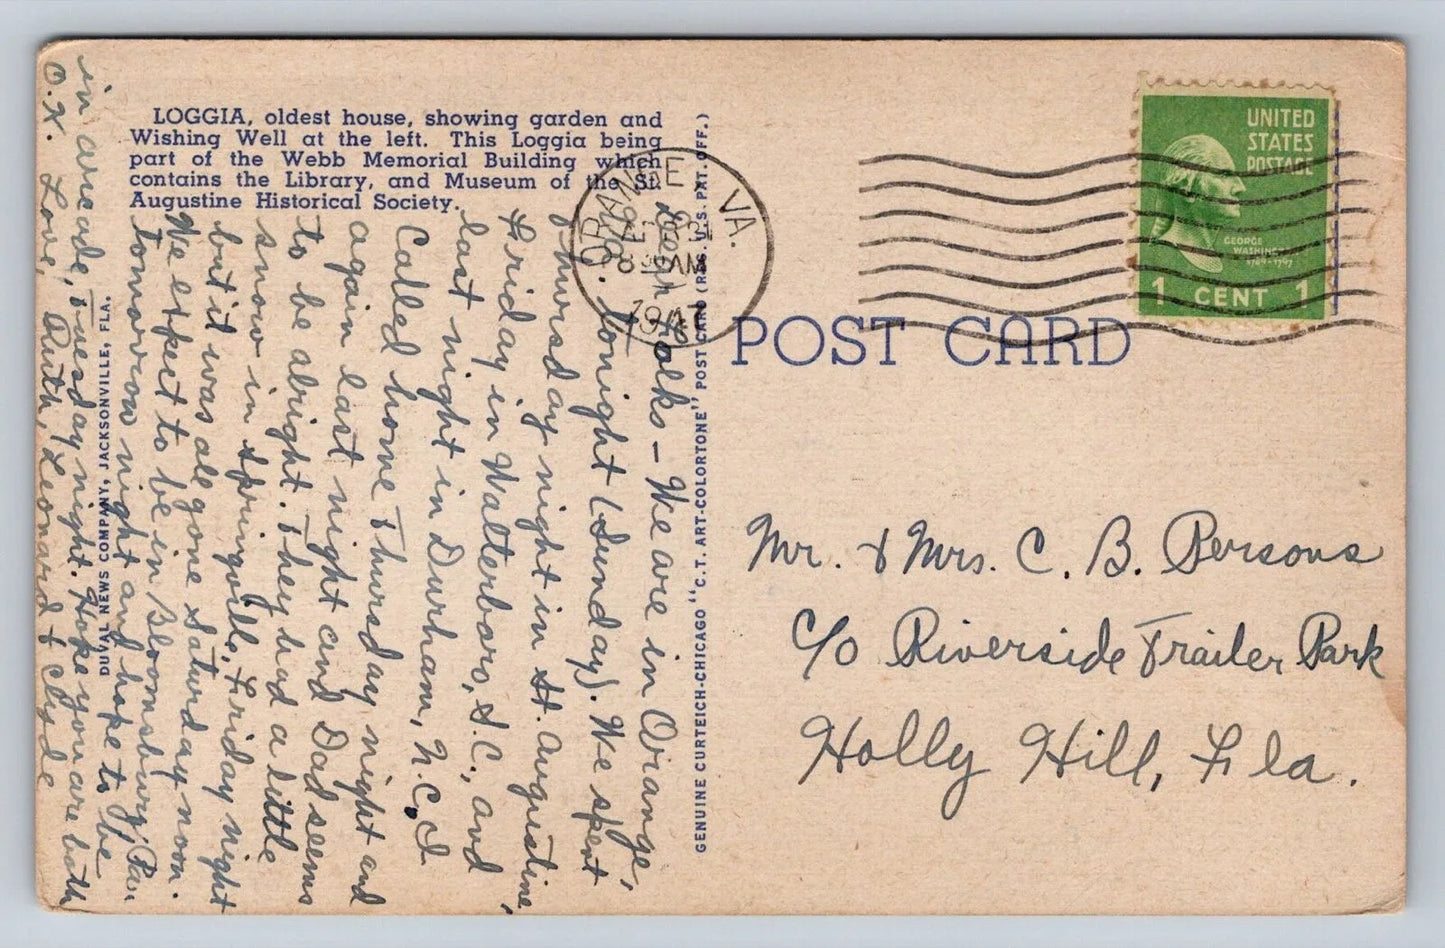 LOGGIA, oldest house, showing garden and
Wishing Well at the left. This Loggia being
part of the Webb Memorial Building which
contains the Library, and Museum of the St.
Augustine Historical Society.
ORANGE VA.
8 AM
1947
UNITED
STATES
POSTAGE
GEORGE
WASHINGTON
1789-1797
1 CENT 1
POST CARD
Mr. & Mrs. C. B. Persons
c/o Riverside Trailer Park
Holly Hill, Fla.
GENUINE CURTEICH-CHICAGO "C.T. ART-COLORTONE" POST CARD (REG. U.S. PAT. OFF.)
Folks – We are in Orange,
Va. tonight (Sunday). We spent
Thursday night in St. Augustine,
Friday in Walterboro, S.C., and
last night in Durham, N.C. I
Called home Thursday night and
again last night and Dad seems
to be alright. They had a little
snow in Springville, Friday night
but it was all gone Saturday noon.
We expect to be in Bloomsbury, Pa.
tomorrow night and hope to be
in arcade, Tuesday night. Hope you are both
O.K. Love, Ruth, Leonard & Clyde
DUVAL NEWS COMPANY, JACKSONVILLE, FLA.